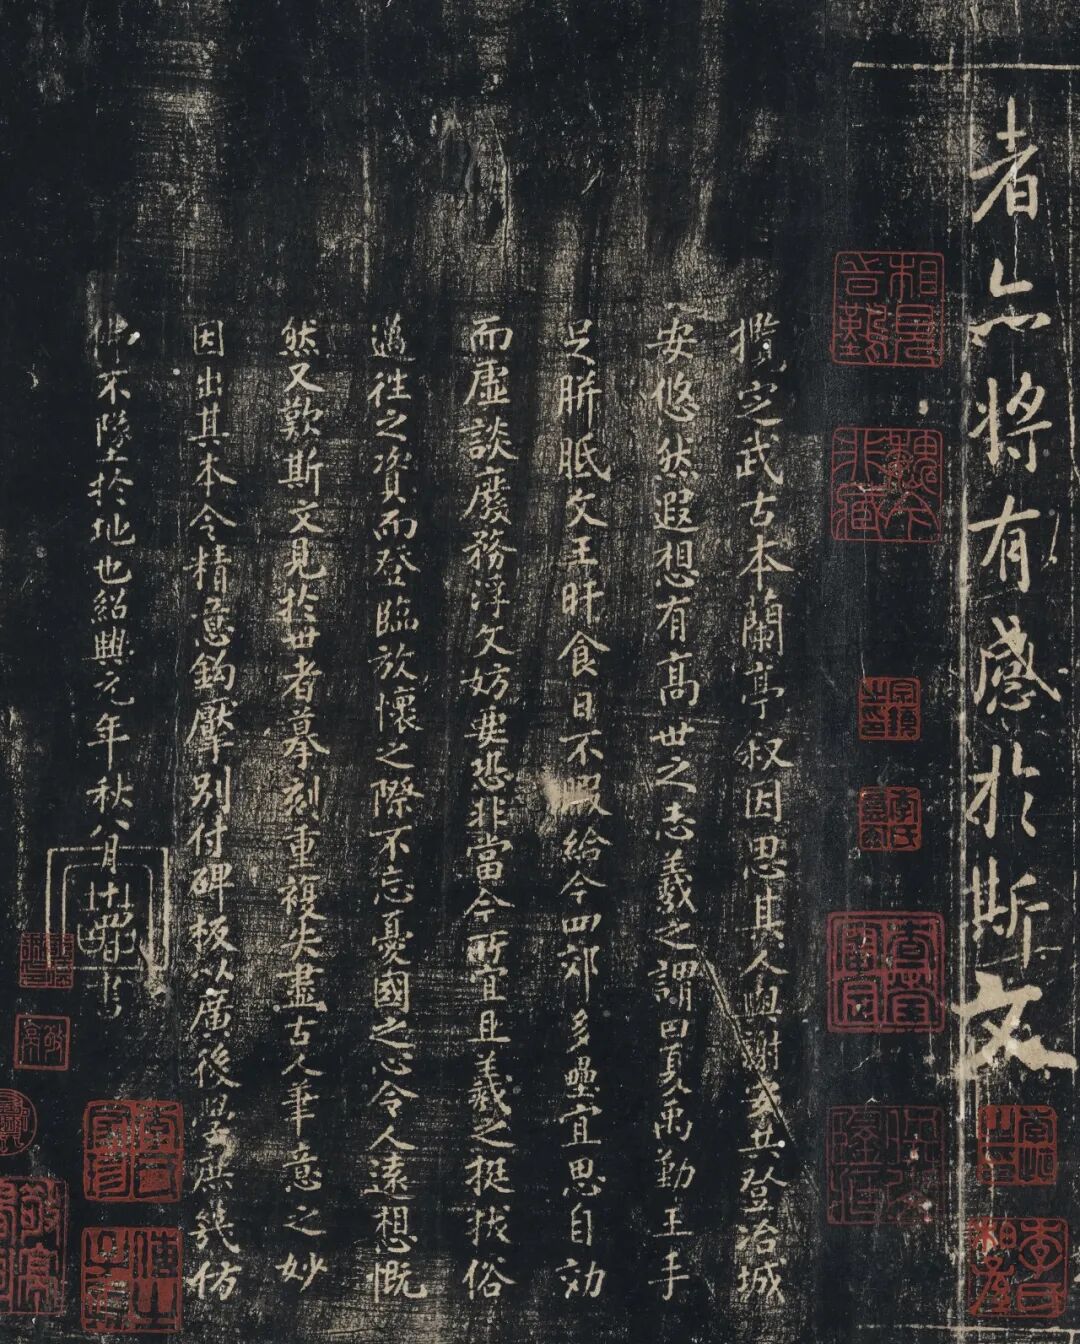 者亦將有感於斯文
攬定武古本蘭亭叙因思其人與謝安共登冶城
安悠然遐想有高世之志羲之謂曰夏禹勤王手
足胼胝文王旰食日不暇給今四郊多壘宜思自効
而虛談廢務浮文妨要恐非當今所宜且羲之挺拔俗
邁往之資而登臨放懷之際不忘憂國之心令人遠想慨
然又歎斯文見於世者摹刻重複失盡古人筆意之妙
因出其本令精意鈎摹別付碑板以廣後學庶幾仿
佛不墜於地也紹興元年秋八月十四日書